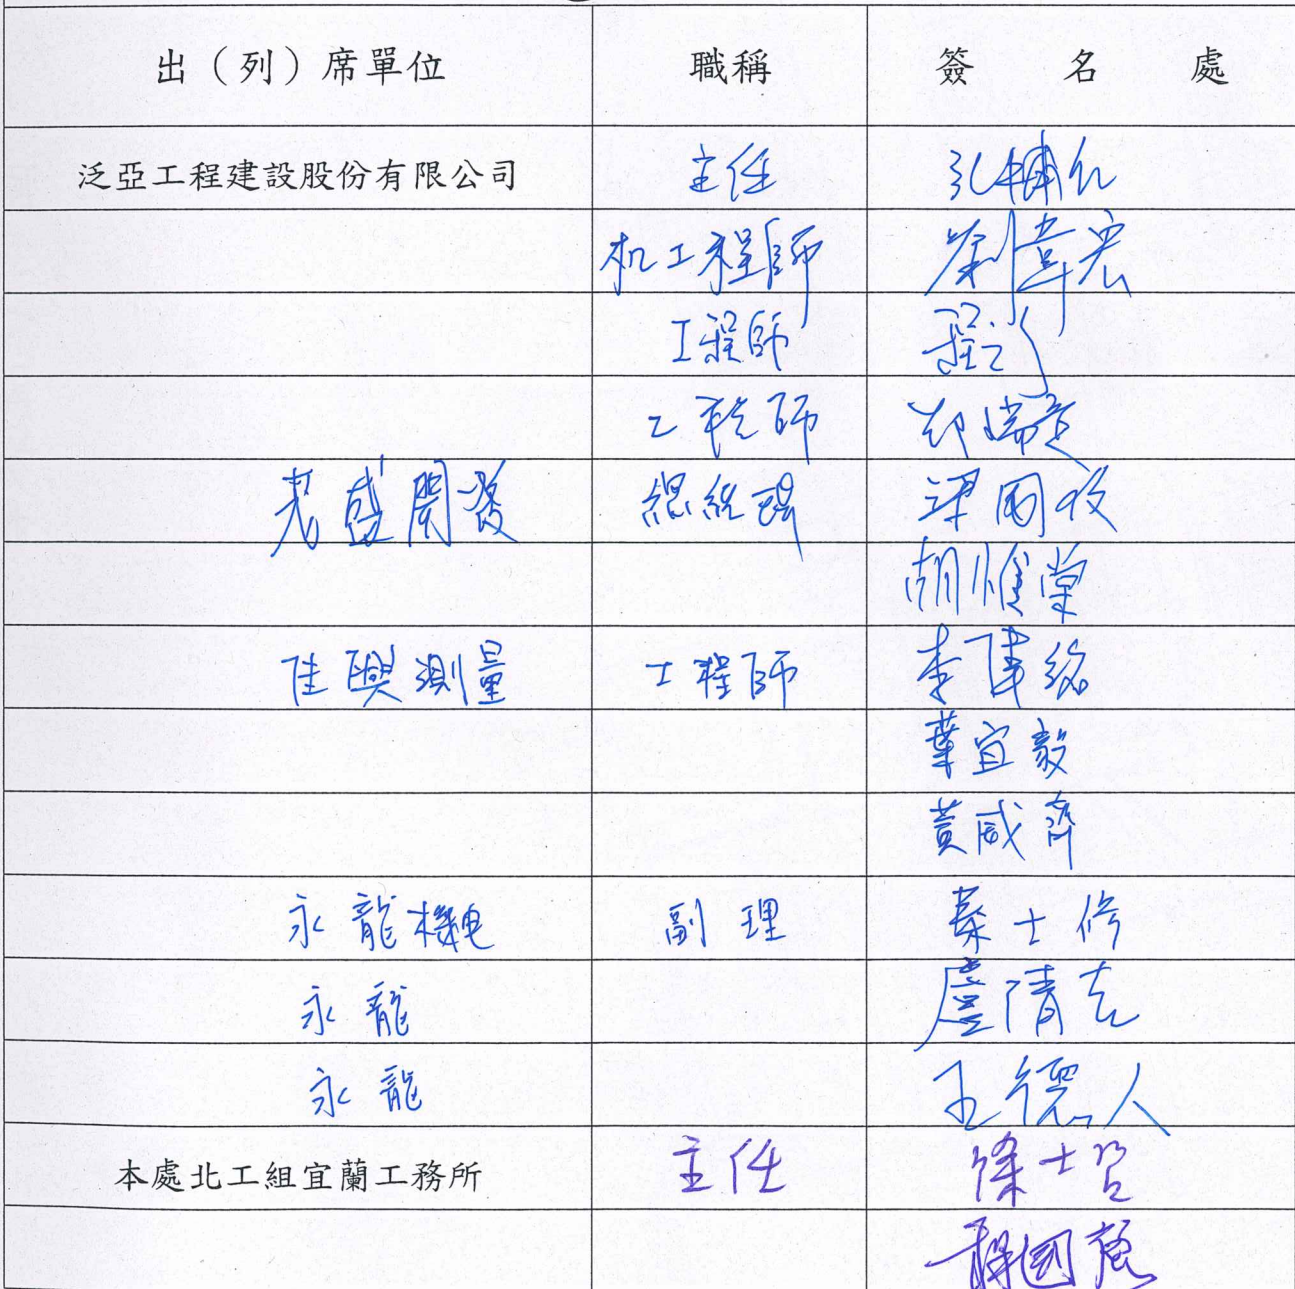 出（列）席單位 職稱 簽名處
泛亞工程建設股份有限公司 主任
机工程師 劉韋宏
工程師
工程師 鄭瑞
盛開發 總經理 梁國
胡惟棠
佳興測量 工程師 李偉銘
葉宜毅
黃威齊
永龍機電 副理 秦士修
永龍
永龍 王德人
本處北工組宜蘭工務所 主任 徐士
國